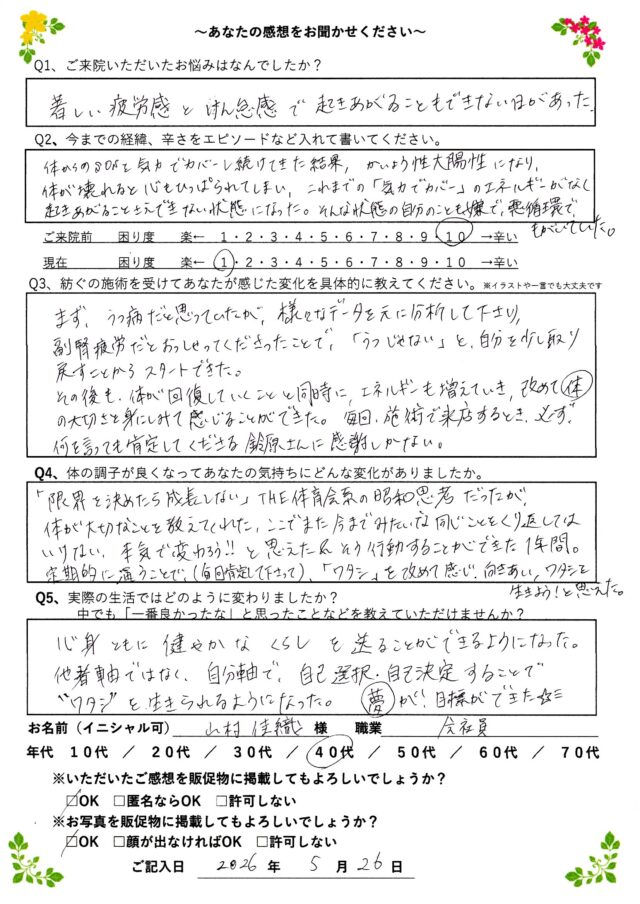 ～あなたの感想をお聞かせください～
Q1、ご来院いただいたお悩みはなんでしたか？
著しい疲労感とけん怠感で起きあがることもできない日があった.
Q2、今までの経緯、辛さをエピソードなど入れて書いてください。
体からのSOSを気力でカバーし続けてきた結果, かいよう性大腸性になり,
体が壊れると心もひっぱられてしまい, これまでの「気力でカバー」のエネルギーがなく
起きあがることさえできない状態になった。そんな状態の自分のことも嫌で, 悪循環で,
もがいていた。
ご来院前 困り度 楽← 1・2・3・4・5・6・7・8・9・10 →辛い
現在 困り度 楽← 1・2・3・4・5・6・7・8・9・10 →辛い
Q3、紡ぐの施術を受けてあなたが感じた変化を具体的に教えてください。※イラストや一言でも大丈夫です
まず, うつ病だと思っていたが, 様々なデータを元に分析して下さり,
副腎疲労だとおっしゃってくださったことで,「うつじゃない」と, 自分を少し取り
戻すことからスタートできた。
その後も, 体が回復していくことと同時に, エネルギーも増えていき, 改めて体
の大切さを身にしみて感じることができた。毎回, 施術で来店するとき, 必ず,
何を言っても肯定してくださる鈴原さんに感謝しかない。
Q4、体の調子が良くなってあなたの気持ちにどんな変化がありましたか。
「限界を決めたら成長しない」THE体育会系の昭和思考だったが,
体が大切なことを教えてくれた, ここでまた今までみたいな同じことをくり返しては
いけない, 本気で変わろう!! と思えたしそう行動することができた1年間。
定期的に通うことで,(毎回肯定して下さって),「ワタシ」を改めて感じ, 向きあい, ワタシを
生きよう!と思えた。
Q5、実際の生活ではどのように変わりましたか？
中でも「一番良かったな」と思ったことなどを教えていただけませんか？
心身ともに健やかなくらしを送ることができるようになった。
他者軸ではなく, 自分軸で, 自己選択・自己決定することで
"ワタシ"を生きられるようになった。夢が!目標ができた☆
お名前（イニシャル可） 山村佳織 様 職業 会社員
年代 10代 ／ 20代 ／ 30代 ／ 40代 ／ 50代 ／ 60代 ／ 70代
※いただいたご感想を販促物に掲載してもよろしいでしょうか？
□OK □匿名ならOK □許可しない
※お写真を販促物に掲載してもよろしいでしょうか？
□OK □顔が出なければOK □許可しない
ご記入日 2026 年 5 月 26 日